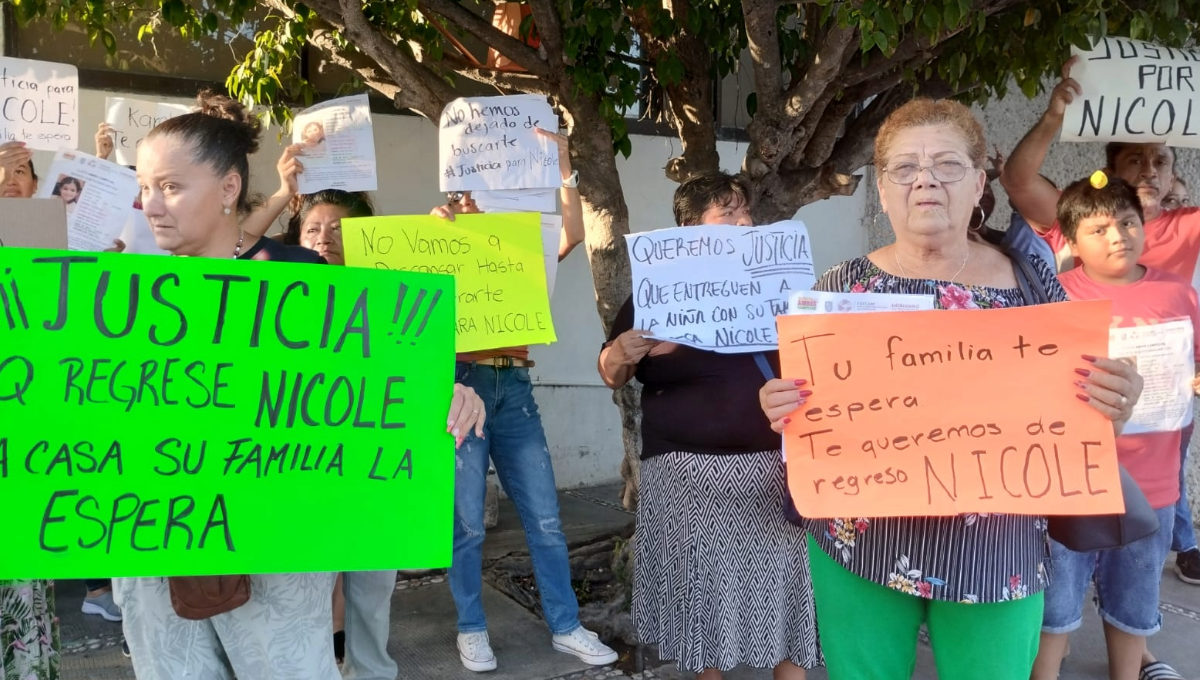 Justicia para
NICOLE!
familia te espera
Te
No hemos
dejado de
buscarte
#Justicia para NICOLE
JUSTICIA
POR
NICOLE
No Vamos a
Descansar Hasta
PARA NICOLE
QUEREMOS JUSTICIA
QUE ENTREGUEN A
LA NIÑA CON SU FAMILIA
NICOLE
¡¡JUSTICIA!!!
Q REGRESE NICOLE
A CASA SU FAMILIA LA
ESPERA
Tu familia te
espera
Te queremos de
regreso NICOLE